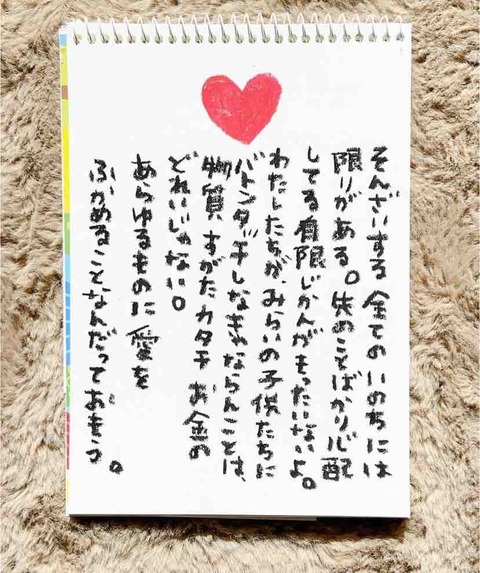 そんざいする 全てのいのちには
限りがある。先のことばかり心配
してる有限じかんがもったいないよ。
わたしたちが、みらいの子供たちに
バトンタッチしなきゃならんことは、
物質 すがたカタチ お金の
どれいじゃない。
あらゆるものに 愛を
ふかめることなんだっておもう。